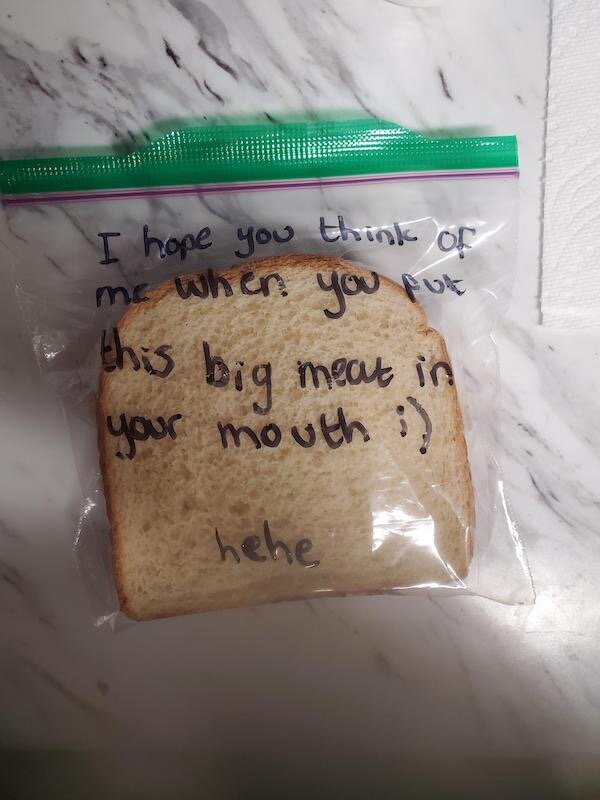 I hope you think of
me when you put
this big meat in
your mouth ;)
hehe